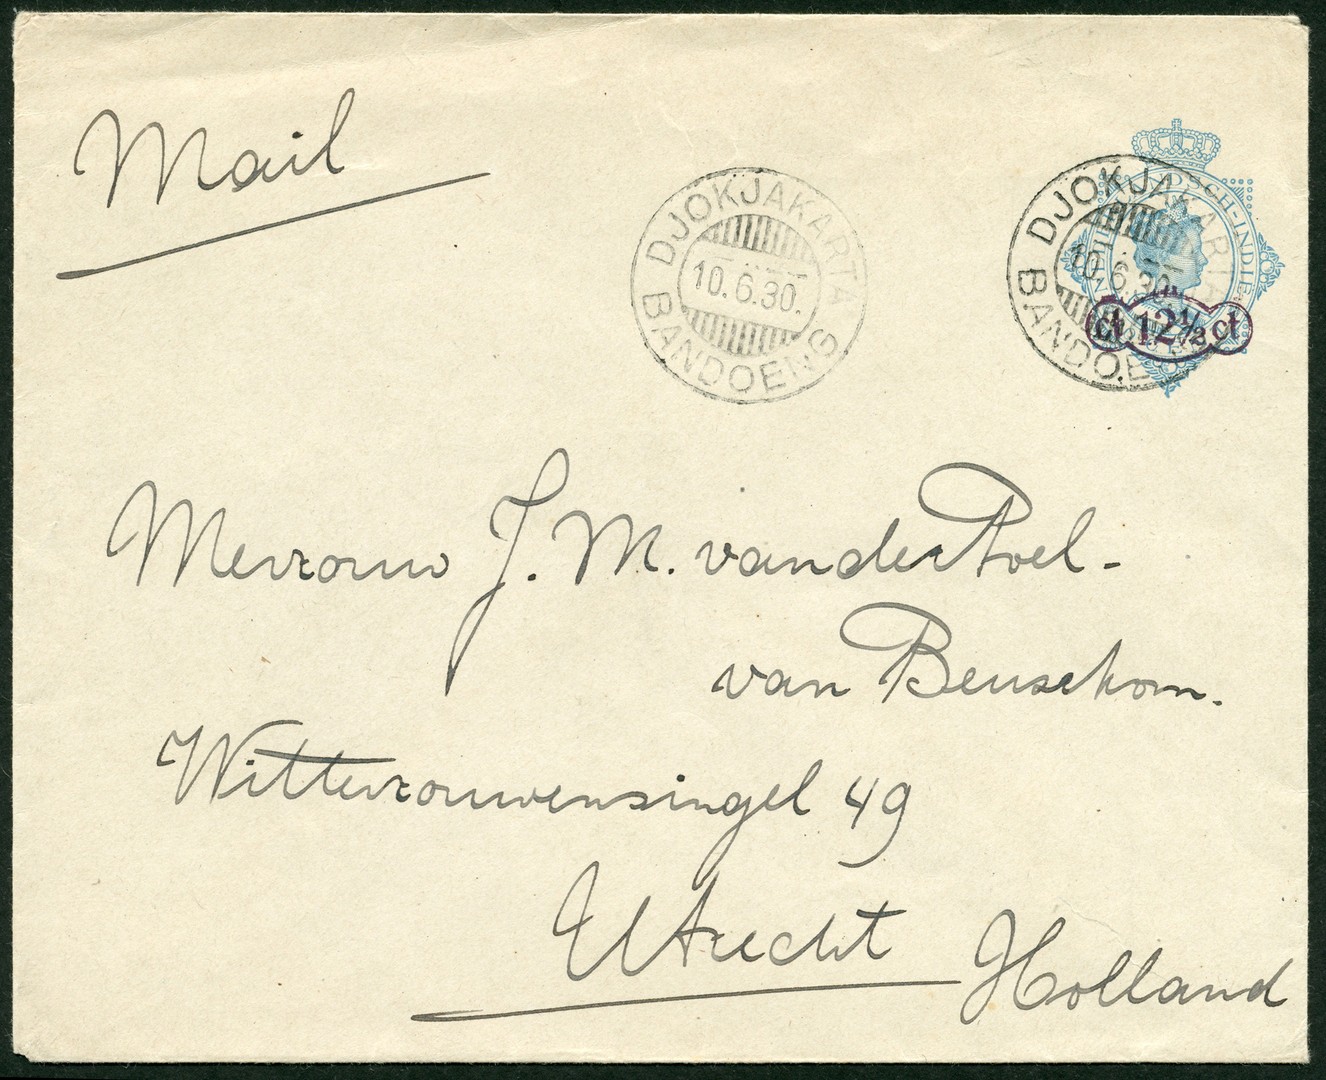 Mail
DJOKJAKARTA
10.6.30.
BANDOENG
DJOKJAKARTA
10.6.30.
BANDOE
NED
DSCH-INDIË
ct 12½ ct
Mevrouw J. M. van der Poel-
van Beusekom.
Wittevrouwensingel 49
Utrecht Holland